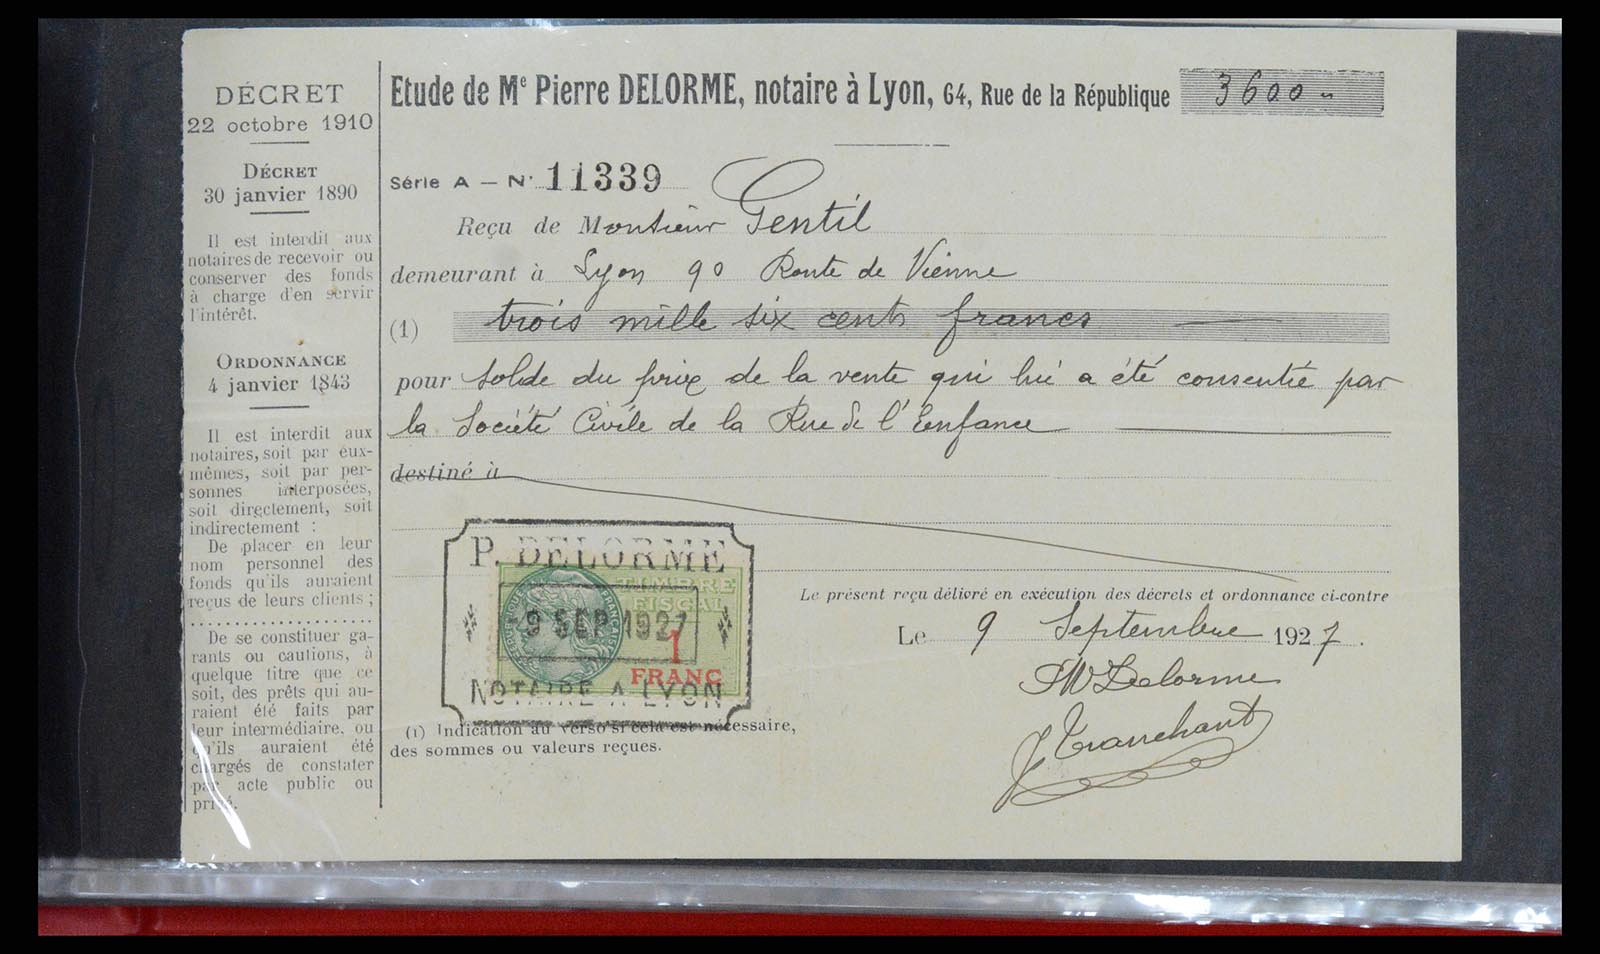 DÉCRET
22 octobre 1910
DÉCRET
30 janvier 1890
Il est interdit aux
notaires de recevoir ou
conserver des fonds
à charge d'en servir
l'intérêt.
ORDONNANCE
4 janvier 1843
Il est interdit aux
notaires, soit par eux-
mêmes, soit par per-
sonnes interposées,
soit directement, soit
indirectement :
De placer en leur
nom personnel des
fonds qu'ils auraient
reçus de leurs clients ;
De se constituer ga-
rants ou cautions, à
quelque titre que ce
soit, des prêts qui au-
raient été faits par
leur intermédiaire, ou
qu'ils auraient été
chargés de constater
par acte public ou
privé.
Etude de Me Pierre DELORME, notaire à Lyon, 64, Rue de la République 3600 "
Série A — N° 11339
Reçu de Monsieur Gentil
demeurant à Lyon 90 Route de Vienne
(1) trois mille six cents francs
pour solde du prix de la vente qui lui a été consentie par
la Société Civile de la Rue de l'Enfance
destiné à
P. DELORME
TIMBRE
FISCAL
9 SEP 1927
1
FRANC
NOTAIRE A LYON
Le présent reçu délivré en exécution des décrets et ordonnance ci-contre
Le 9 Septembre 1927.
Delorme
J Tranchant
(1) Indication au verso si cela est nécessaire,
des sommes ou valeurs reçues.